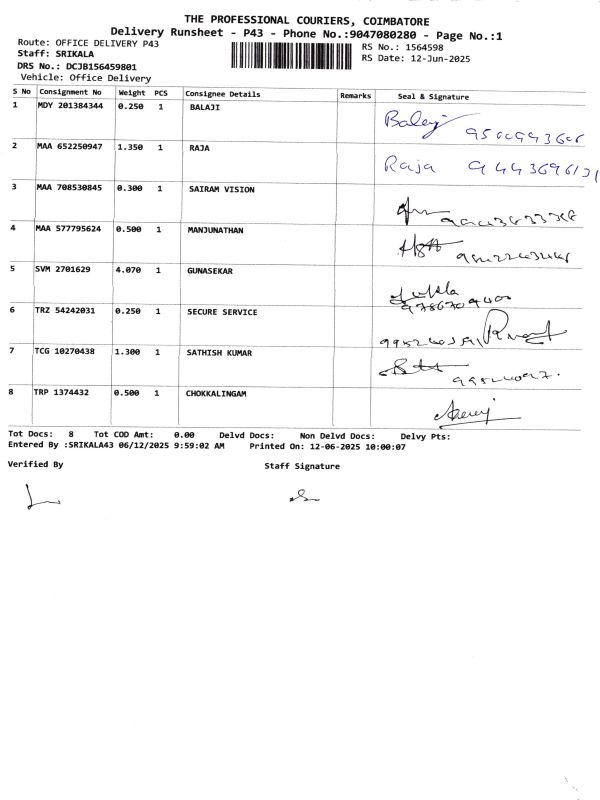 THE PROFESSIONAL COURIERS, COIMBATORE
Delivery Runsheet - P43 - Phone No.:9047080280 - Page No.:1
Route: OFFICE DELIVERY P43
Staff: SRIKALA
DRS No.: DCJB156459801
Vehicle: Office Delivery
RS No.: 1564598
RS Date: 12-Jun-2025
S No Consignment No Weight PCS Consignee Details Remarks Seal & Signature
1 MDY 201384344 0.250 1 BALAJI Balaji
2 MAA 652250947 1.350 1 RAJA Raja
3 MAA 708530845 0.300 1 SAIRAM VISION
4 MAA 577795624 0.500 1 MANJUNATHAN
5 SVM 2701629 4.070 1 GUNASEKAR
6 TRZ 54242031 0.250 1 SECURE SERVICE
7 TCG 10270438 1.300 1 SATHISH KUMAR
8 TRP 1374432 0.500 1 CHOKKALINGAM
Tot Docs: 8 Tot COD Amt: 0.00 Delvd Docs: Non Delvd Docs: Delvy Pts:
Entered By :SRIKALA43 06/12/2025 9:59:02 AM Printed On: 12-06-2025 10:00:07
Verified By Staff Signature